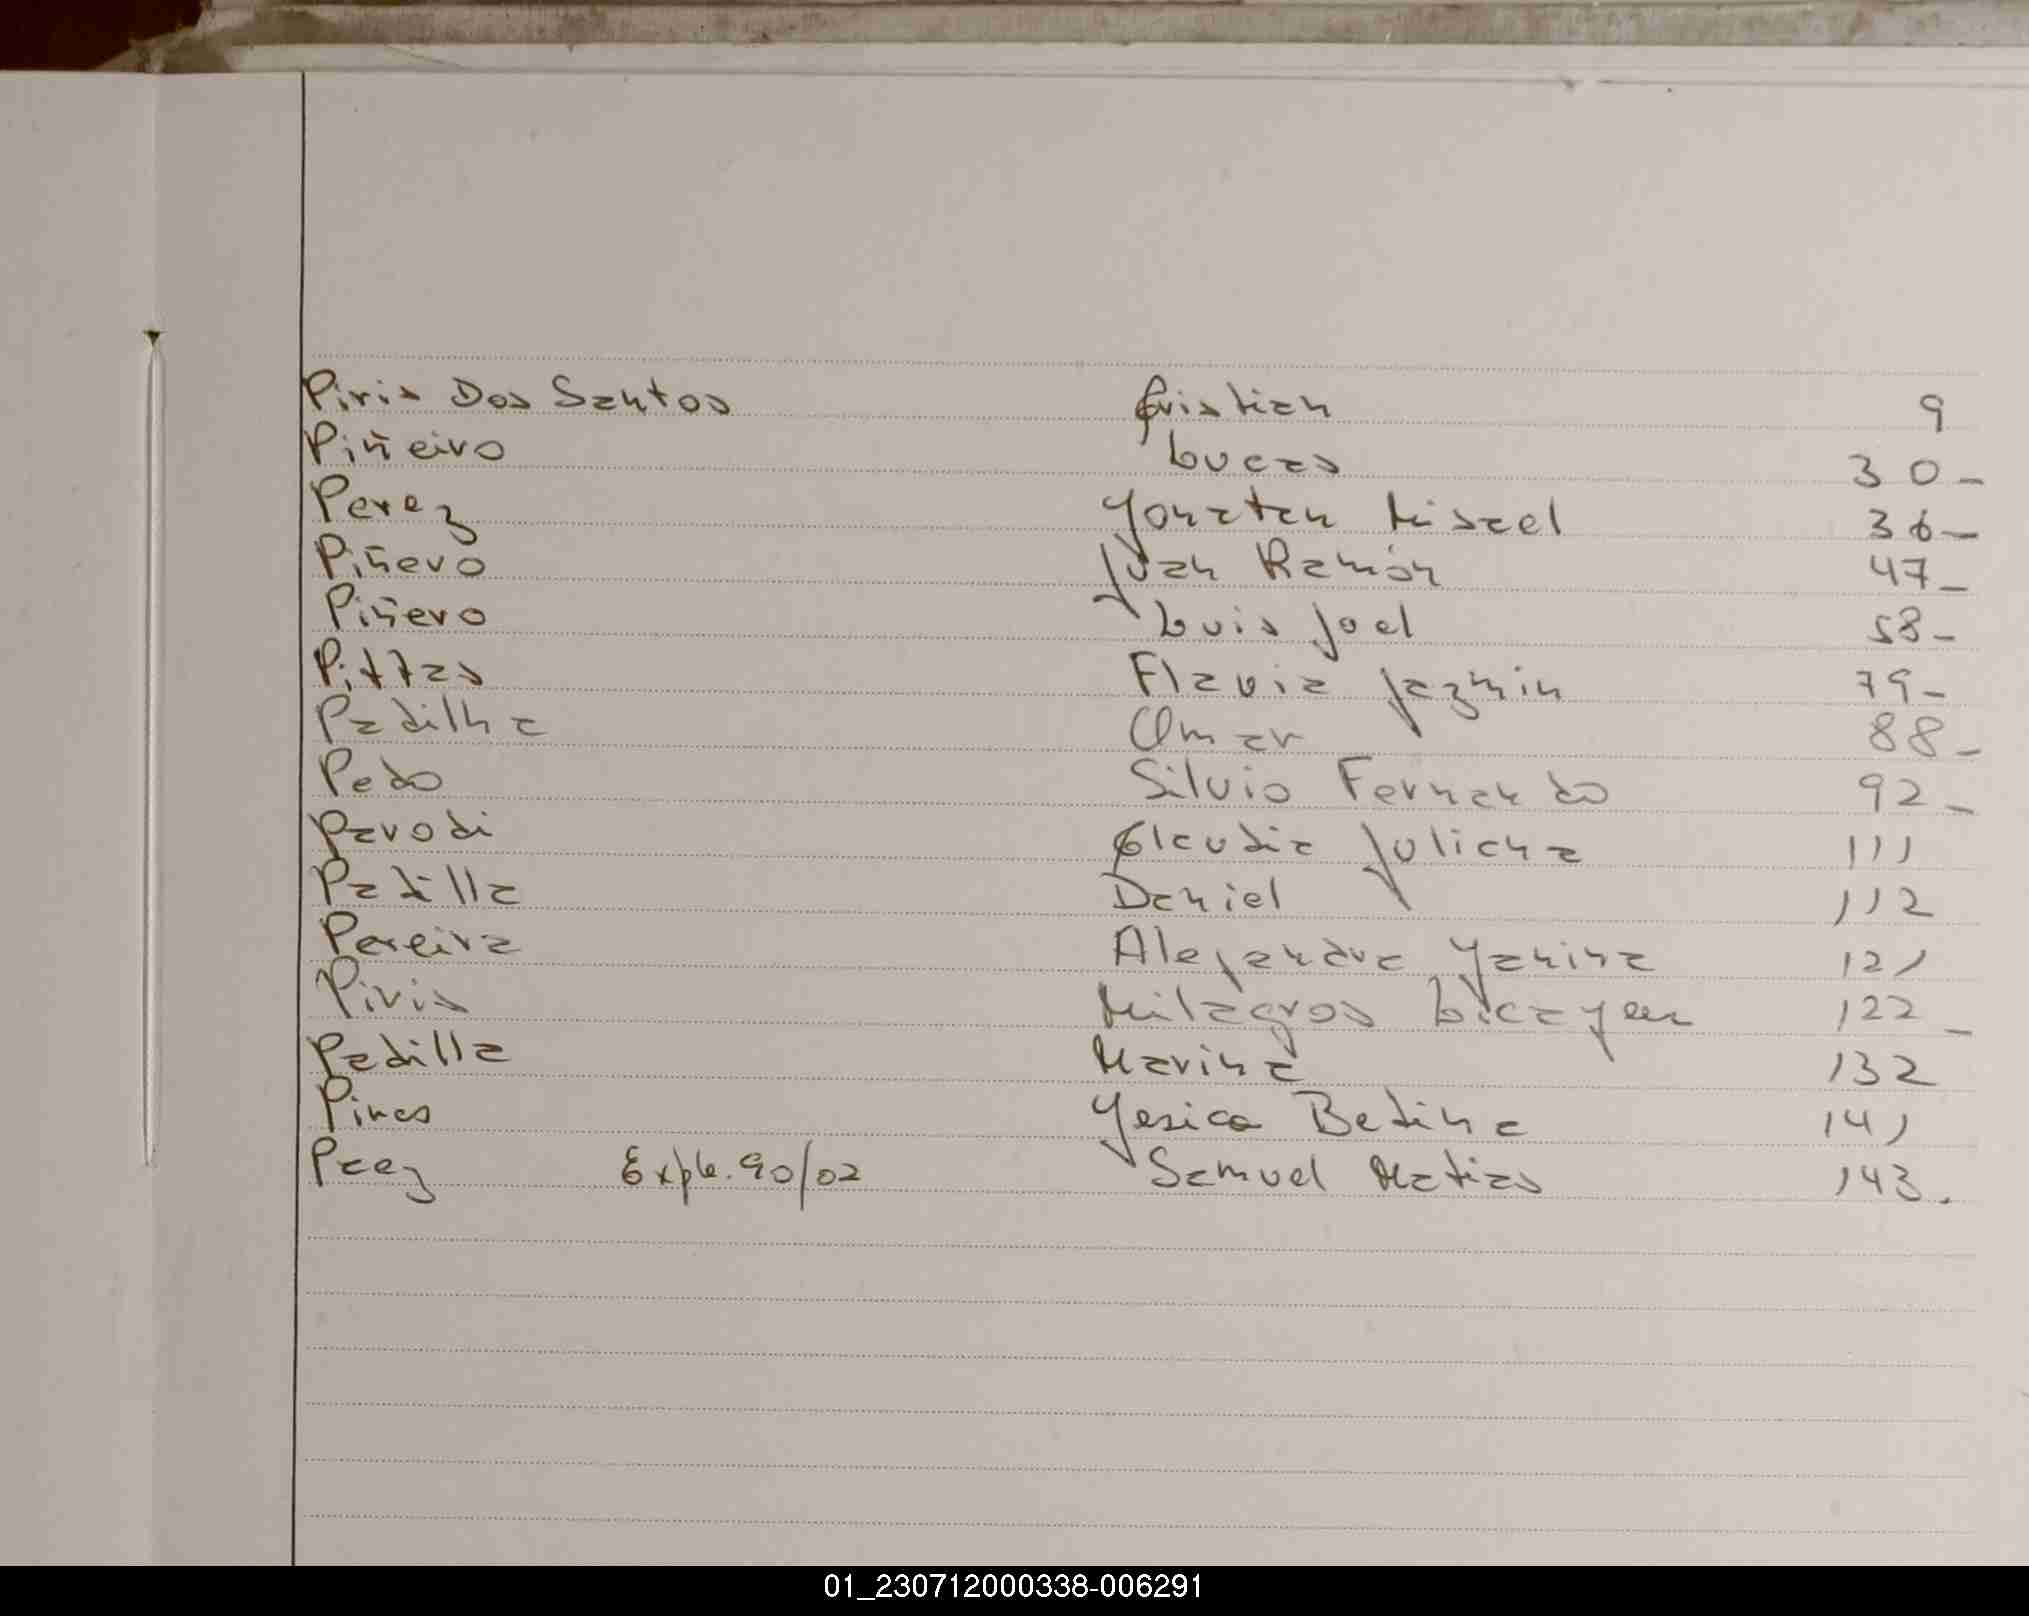 Piris Dos Santos Cristian 9
Piñeiro Lucas 30-
Perez Yonatan Misael 36-
Piñero Juan Ramón 47-
Piñero Luis Joel 58-
Pittas Flavia Jazmin 79-
Padilha Omar 88-
Pedo Silvio Fernando 92-
Parodi Claudia Juliana 111
Padilla Daniel 112
Pereira Alejandra Yanina 121
Piris Milagros 122-
Padilla Marina 132
Yesica Betina 141
Paez Expte. 90/02 Samuel Matias 143.
01_230712000338-006291